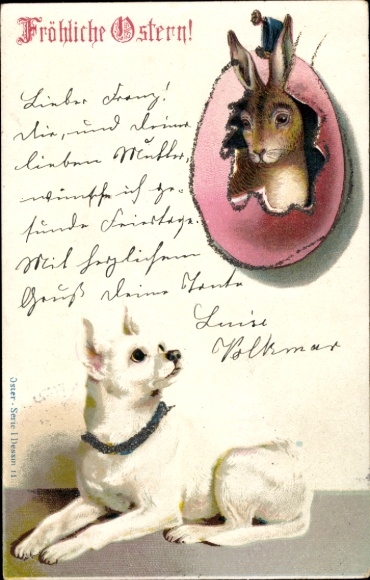 Fröhliche Ostern!
Lieber Franz!
Dir, und deiner
lieben Mutter,
wünsche ich ge-
sunde Feiertage.
Mit herzlichem
Gruß deine Tante
Luise
Volkmar
Oster-Serie 1 Dessin 11